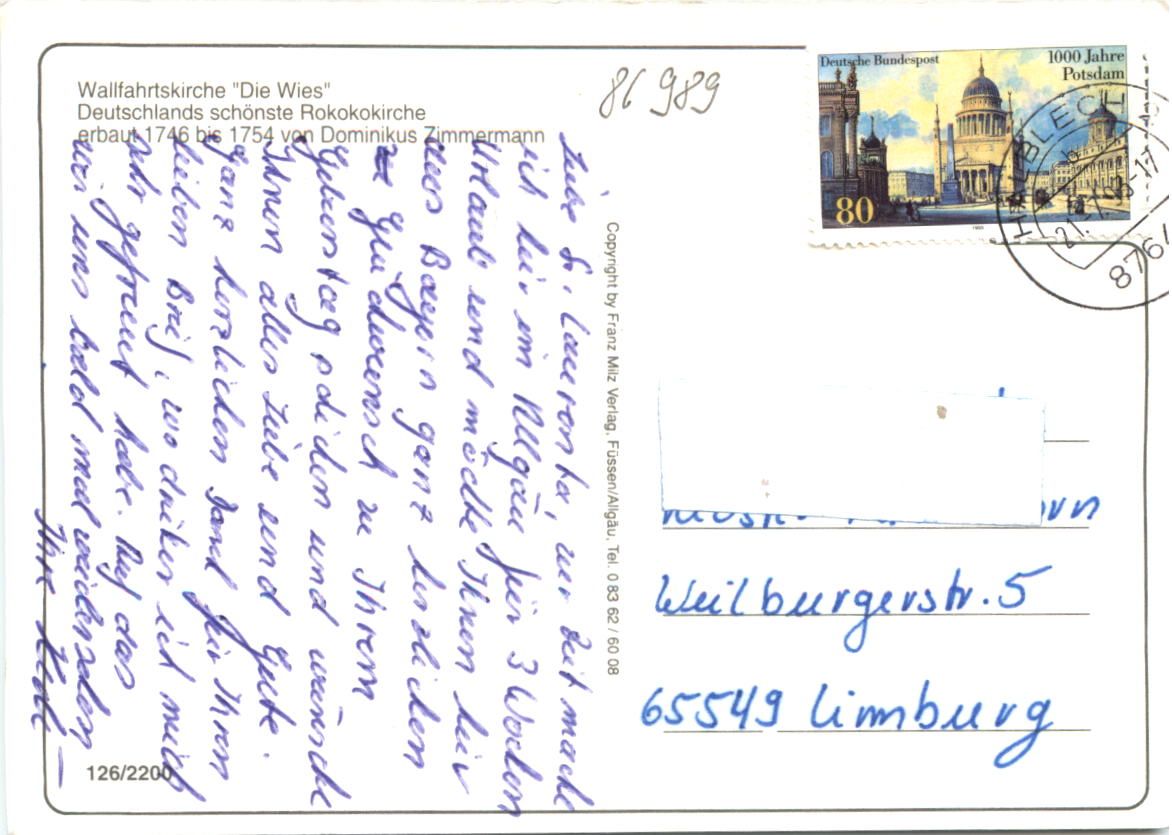 Wallfahrtskirche "Die Wies"
Deutschlands schönste Rokokokirche
erbaut 1746 bis 1754 von Dominikus Zimmermann
86 989
Deutsche Bundespost
1000 Jahre
Potsdam
80
1993
HALBLECH
21.-7.93-17
8764
Liebe zur Zeit mache
ich hier im Allgäu für 3 Wochen
Urlaub und möchte Ihnen hier
aus Bayern ganz herzlichen
Glückwunsch zu Ihrem
Geburtstag schicken und wünsche
Ihnen alles Liebe und Gute.
Ganz herzlichen Dank für Ihren
lieben Brief, worüber ich mich
sehr gefreut habe. Auf das
wir uns bald mal wiedersehen
Ihre
Copyright by Franz Milz Verlag, Füssen/Allgäu, Tel. 0 83 62 / 60 08
Weilburgerstr. 5
65549 Limburg
126/2200